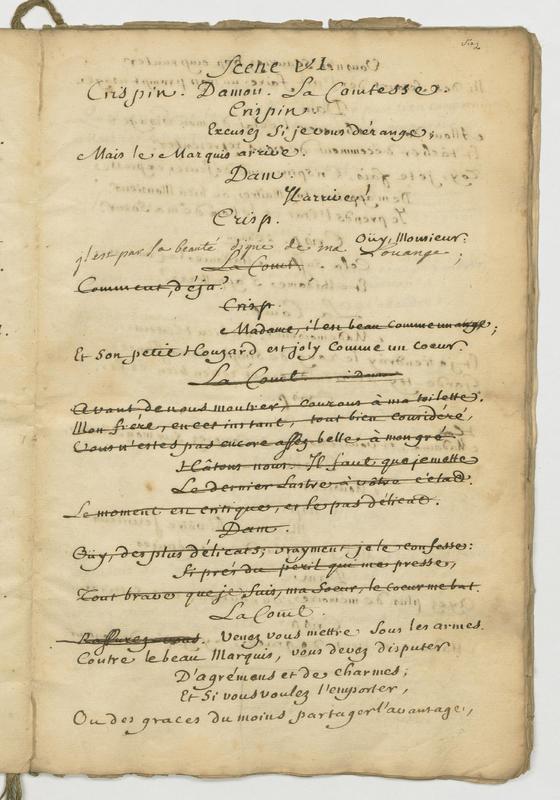 Scene VI.
Crispin. Damon. La Comtesse.
Crispin.
Excusez si je vous dérange;
Mais le Marquis arrive.
Dam.
Il arrive?
Crisp.
Oüy, Monsieur:
il est par sa beauté digne de ma Loüange;
La Comt.
Comment, déja?
Crisp.
Madame, il est beau comme un ange;
Et son petit Houzard est joly comme un coeur.
La Comt.
Avant de nous montrer, courons à ma toilette.
Mon frere, en cet instant, tout bien considéré,
Vous n'estes pas encore assez belle à mon gré.
Hâtons nous. Il faut que je mette
Le dernier lustre à vôtre éclat.
Le moment est critique, et le pas délicat.
Dam.
Oüy, des plus délicats; vrayment, je le confesse:
Si prés du péril qui me presse,
Tout brave que je suis, ma Soeur, le coeur me bat.
La Comt.
Rassurez-vous. Venez vous mettre sous les armes.
Contre le beau Marquis, vous devez disputer
D'agrémens et de charmes;
Et si vous voulez l'emporter,
Ou des graces du moins partager l'avantage,